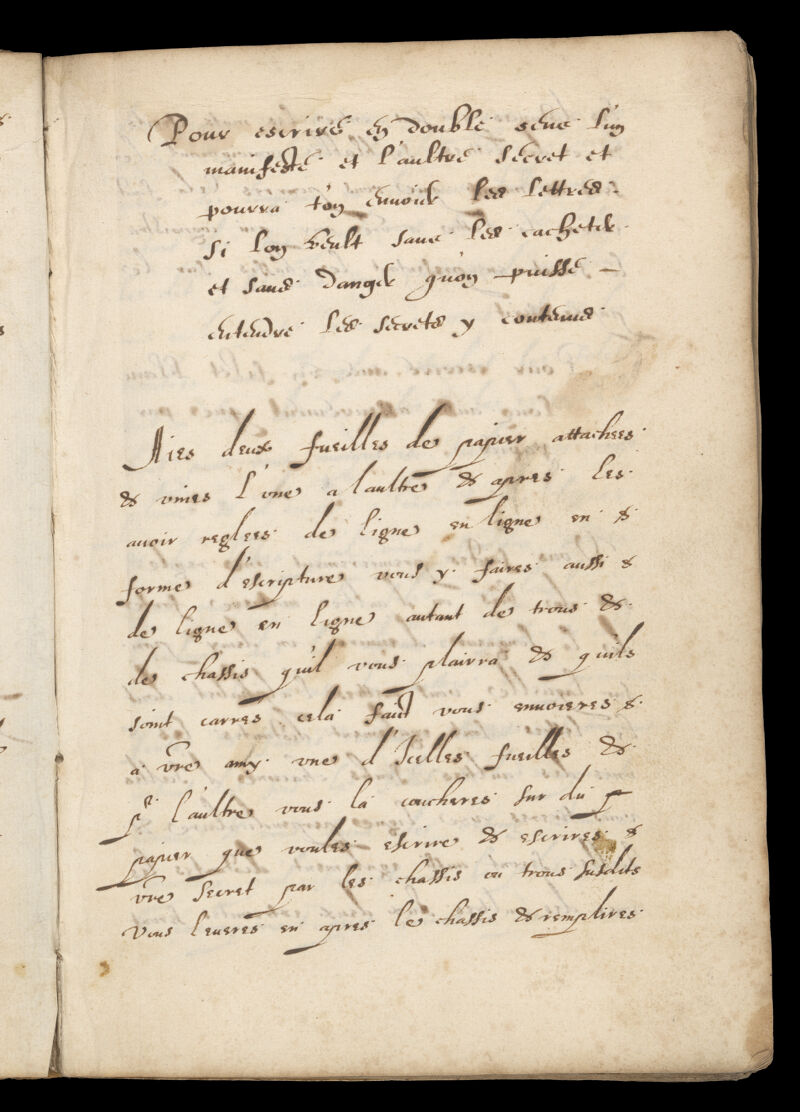 Pour escrire en double sens l'un
manifeste et l'aultre secret et
pourra t'on envoier les lettres
si l'on veult sans les cacheter
et sans danger qu'on puisse
entendre les secrets y contenus
Aies deux fueilles de papier attachees
& vnies l'vne a laultre & apres les
auoir reglees de ligne en ligne en &
forme d'escripture vous y faires aussi &
de ligne en ligne autant de trous &
de chassis quil vous plairra & quils
soint carres cela faict vous enuoieres &
a vre amy vne d'Icelles fueilles &
pr l'aultre vous la coucheres sur du p
papier que voules escrire & escrires &
vre secret par les chassis ou trous susdits
Vous leueres en apres le chassis & remplires